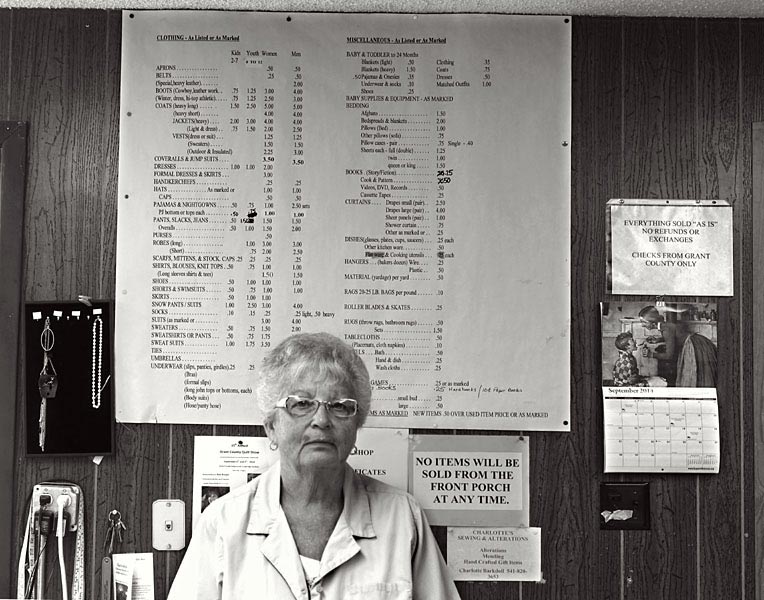 CLOTHING - As Listed or As Marked
Kids Youth Women Men
2-7
APRONS .50 .50
BELTS .25 .50
(Special,heavy leather) 2.00
BOOTS (Cowboy,leather work .75 1.25 3.00 4.00
(Winter, dress, hi-top athletic) .75 1.25 2.50 3.00
COATS (heavy long) 1.50 2.50 5.00 5.00
(heavy short) 4.00 4.00
JACKETS(heavy) 2.00 3.00 4.00 4.00
(Light & dress) .75 1.50 2.00 2.50
VESTS(dress or suit) 1.25 1.25
(Sweaters) 1.50 1.50
(Outdoor & Insulated) 2.25 3.00
COVERALLS & JUMP SUITS 3.50 3.50
DRESSES 1.00 1.00 2.00
FORMAL DRESSES & SKIRTS 3.00
HANDKERCHIEFS .25 .25
HATS As marked or 1.00 1.00
CAPS .50 .50
PAJAMAS & NIGHTGOWNS .50 .75 1.00 2.50 sets
PJ bottom or tops each .50 1.00 1.00
PANTS, SLACKS, JEANS .50 1.50 1.50
Overalls .50 1.00 1.50 2.00
PURSES .50
ROBES (long) 1.00 3.00 3.00
(Short) .75 2.00 2.50
SCARFS, MITTENS, & STOCK. CAPS .25 .25 .25 .25
SHIRTS, BLOUSES, KNIT TOPS .50 .75 1.00 1.00
(Long sleeves shirts & tee) 1.50 1.50
SHOES .50 1.00 1.00 1.00
SHORTS & SWIMSUITS .50 .75 1.00 1.00
SKIRTS .50 1.00 1.00
SNOW PANTS / SUITS 1.00 2.50 3.00 4.00
SOCKS .10 .15 .25 .25 light, .50 heavy
SUITS (as marked or 3.00 4.00
SWEATERS .50 .75 1.50 2.00
SWEATSHIRTS OR PANTS .50 .75 1.75
SWEAT SUITS 1.00 1.75 3.50
TIES
UMBRELLAS
UNDERWEAR (slips, panties, girdles) .25 .25
(Bras)
(formal slips)
(long john tops or bottoms, each)
(Body suits)
(Hose/panty hose)
MISCELLANEOUS - As Listed or As Marked
BABY & TODDLER to 24 Months
Blankets (light) .50 Clothing .35
Blankets (heavy) 1.50 Coats .75
Pajamas & Onesies .35 Dresses .50
Underwear & socks .10 Matched Outfits 1.00
Shoes .25
BABY SUPPLIES & EQUIPMENT - AS MARKED
BEDDING
Afghans 1.50
Bedspreads & blankets 2.00
Pillows (bed) 1.00
Other pillows (sofa) .75
Pillow cases - pair .75 Single - .40
Sheets each - full (double) 1.25
twin 1.00
queen or king 1.50
BOOKS (Story/Fiction)
Cook & Pattern
Videos, DVD, Records .50
Cassette Tapes .25
CURTAINS Drapes small (pair) 2.50
Drapes large (pair) 4.00
Sheer panels (pair) 1.00
Shower curtain .75
Other as marked or .25
DISHES(glasses, plates, cups, saucers) .25 each
Other kitchen ware .50
& Cooking utensils each
HANGERS (bakers dozen) Wire .25
Plastic .50
MATERIAL (yardage) per yard .50
RAGS 20-25 LB. BAGS per pound .10
ROLLER BLADES & SKATES .25
RUGS (throw rugs, bathroom rugs) .50
Sets 1.50
TABLECLOTHS .50
(Placemats, cloth napkins) .10
Bath .50
Hand & dish .25
Wash cloths .25
GAMES .25 or as marked
Books
small bud .25
large .50
AS MARKED NEW ITEMS .50 OVER USED ITEM PRICE OR AS MARKED
EVERYTHING SOLD "AS IS"
NO REFUNDS OR
EXCHANGES
CHECKS FROM GRANT
COUNTY ONLY
September 2014
Grant County Quilt Show
SHOP
NO ITEMS WILL BE
SOLD FROM THE
FRONT PORCH
AT ANY TIME.
CHARLOTTE'S
SEWING & ALTERATIONS
Alterations
Mending
Hand Crafted Gift Items
Charlotte Barkdoll 541-820-
3653